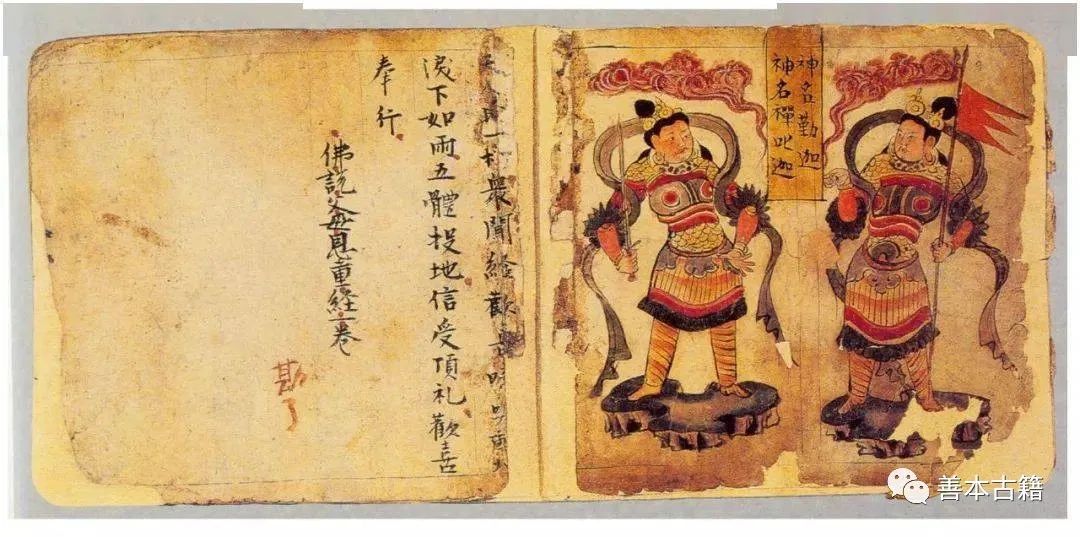 神名勤迦
神名禪迦
一切衆聞經歡
淚下如雨五體投地信受頂礼歡喜
奉行
佛説父母恩重經一卷
勘了
善本古籍